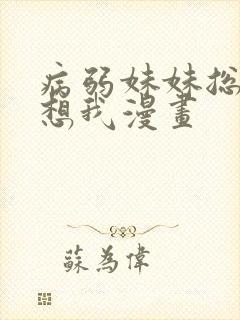 病弱妹妹总
想我漫畫
蘇為偉